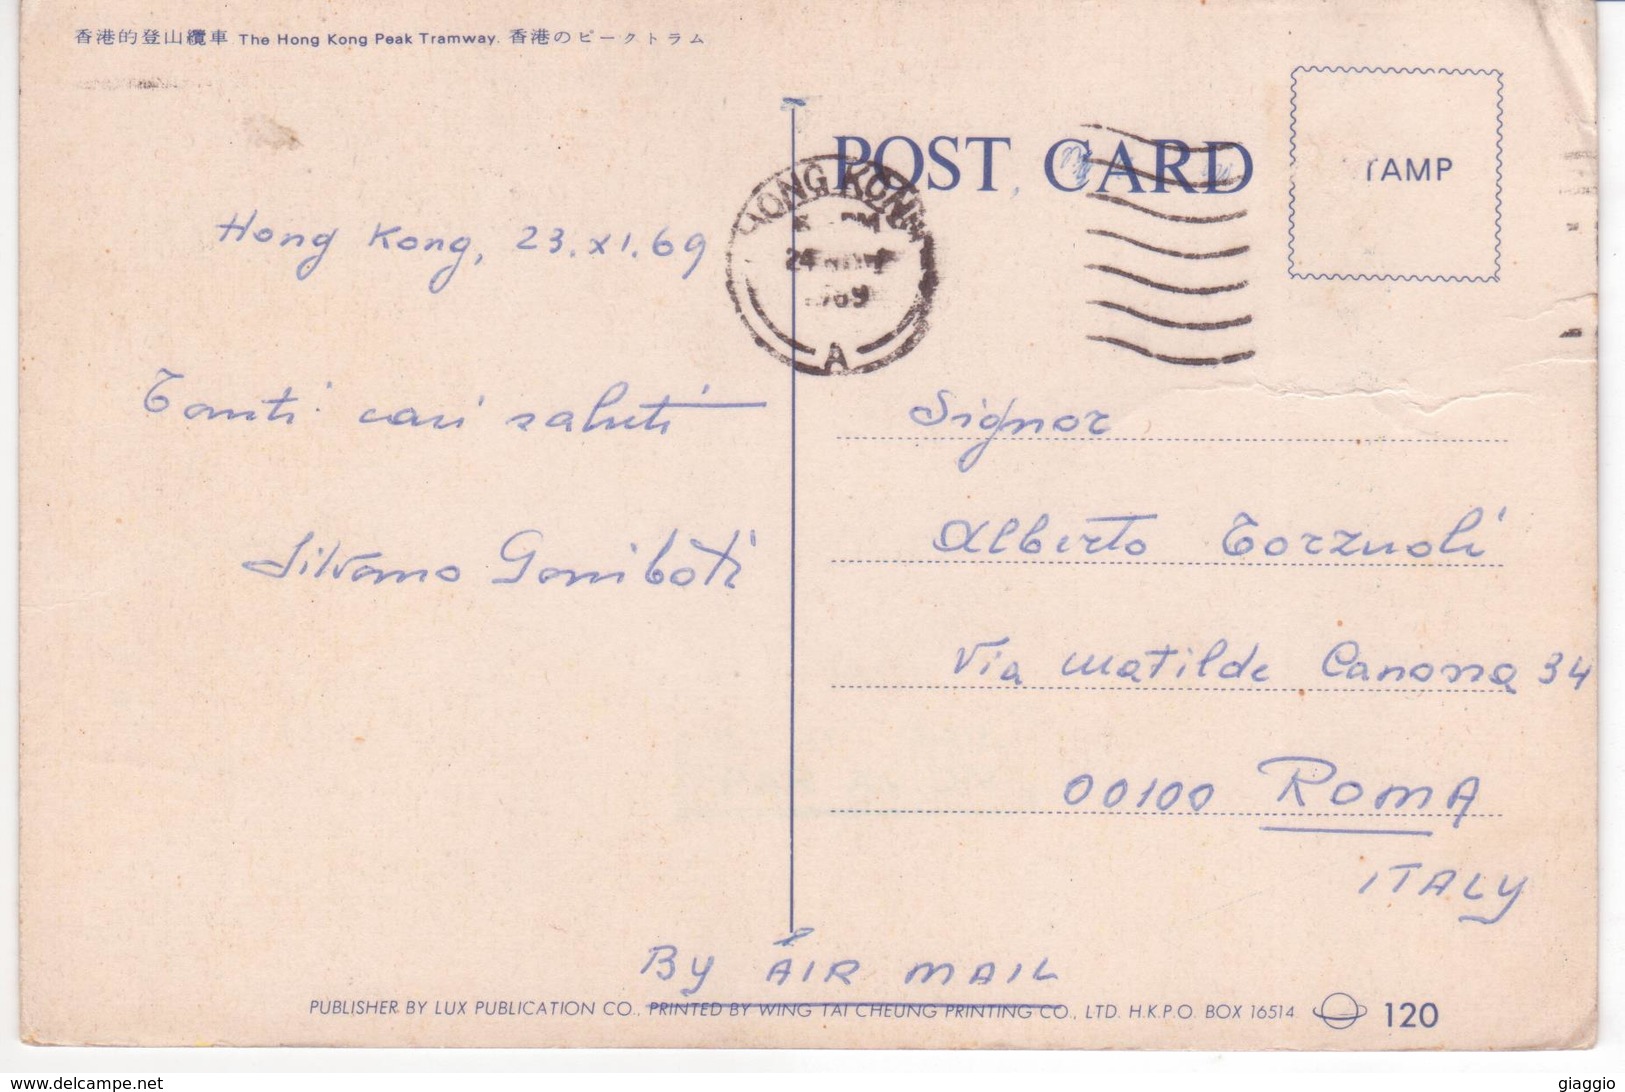 香港的登山纜車 The Hong Kong Peak Tramway. 香港のピークトラム
POST CARD
TAMP
HONG KONG
PM
24 NOV
1969
A
Hong Kong, 23.XI.69
Tanti cari saluti
Silvano
Signor
Alberto Torzuoli
Via Matilde Canossa 34
00100 ROMA
ITALY
BY AIR MAIL
PUBLISHER BY LUX PUBLICATION CO., PRINTED BY WING TAI CHEUNG PRINTING CO., LTD. H.K.P.O. BOX 16514 120
www.delcampe.net
giaggio